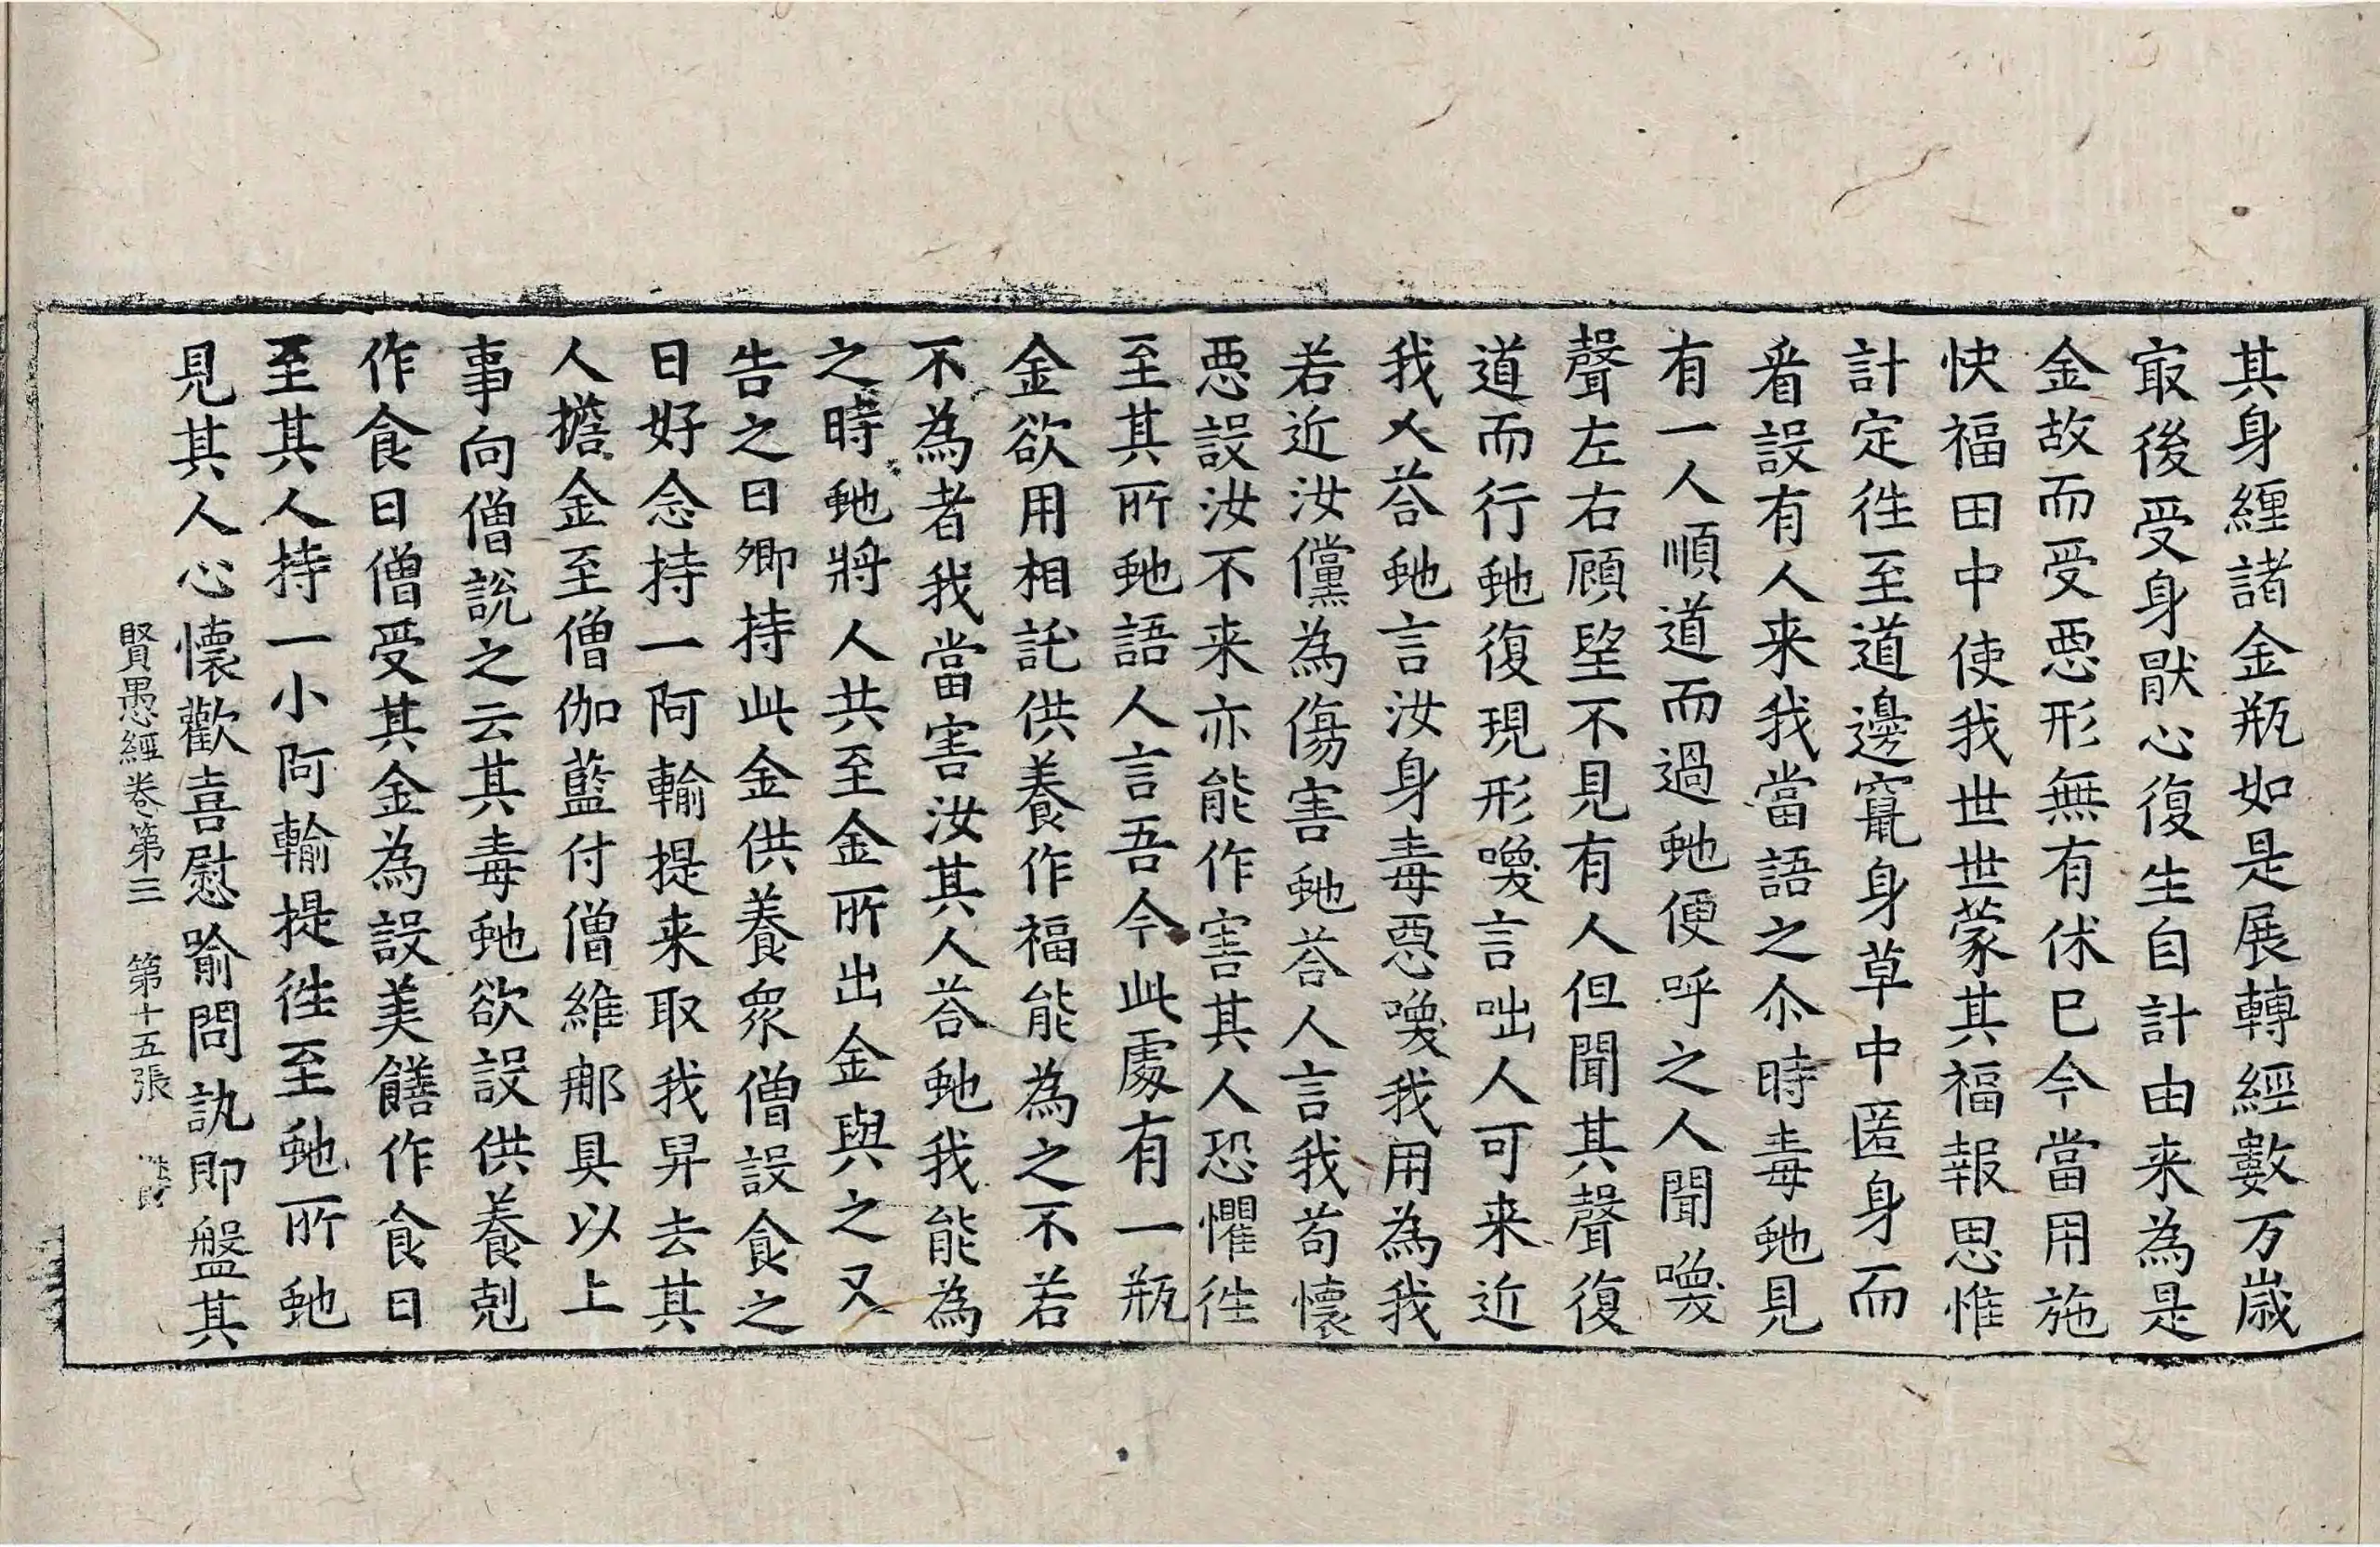 其身纏諸金瓶如是展轉經數万歲
㝡後受身猒心復生自計由来為是
金故而受惡形無有休已今當用施
快福田中使我世世蒙其福報思惟
計定徃至道邊竄身草中匿身而
看設有人来我當語之尒時毒虵見
有一人順道而過虵便呼之人聞喚
聲左右顧望不見有人但聞其聲復
道而行虵復現形喚言咄人可来近
我人荅虵言汝身毒惡喚我用為我
若近汝儻為傷害虵荅人言我苟懷
惡設汝不来亦能作害其人恐懼徃
至其所虵語人言吾今此處有一瓶
金欲用相託供養作福能為之不若
不為者我當害汝其人荅虵我能為
之時虵將人共至金所出金與之又
告之曰卿持此金供養眾僧設食之
日好念持一阿輸提来取我舁去其
人擔金至僧伽藍付僧維那具以上
事向僧說之云其毒虵欲設供養剋
作食日僧受其金為設美饍作食日
至其人持一小阿輸提徃至虵所虵
見其人心懷歡喜慰喻問訊即盤其
賢愚經卷第三　第十五張